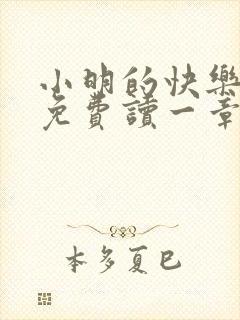 小明的快樂
免費讀一章
本多夏巳